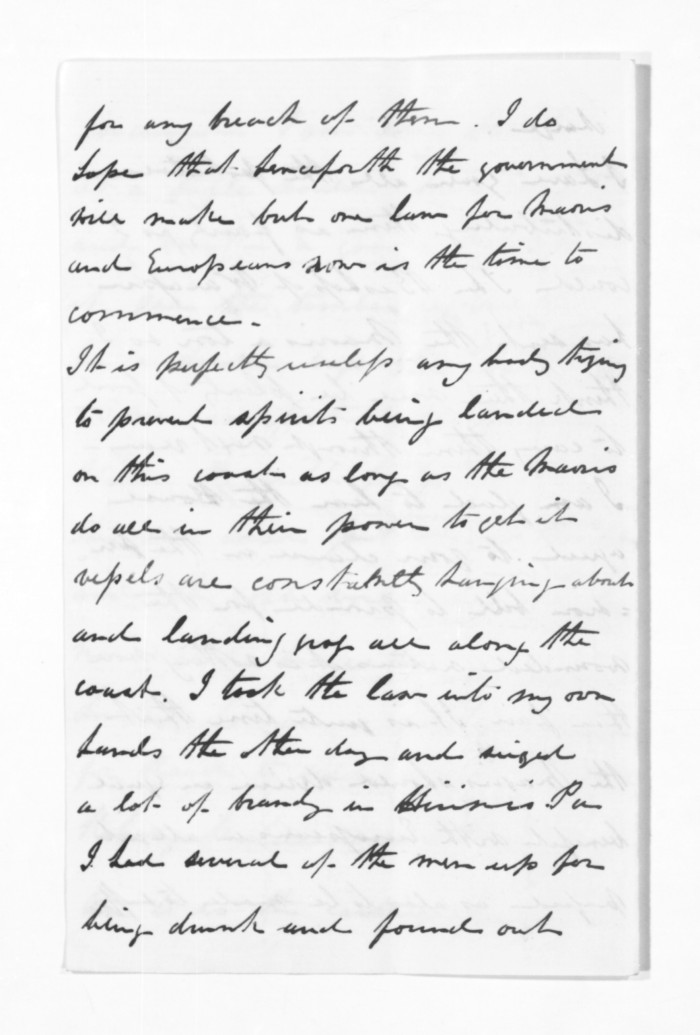 for any breach of them. I do
hope that henceforth the government
will make but one law for Maoris
and Europeans now is the time to
commence.
It is perfectly useless any body trying
to prevent spirits being landed
on this coast as long as the Maoris
do all in their power to get it
vessels are constantly hanging about
and landing grog all along the
coast. I took the law into my own
hands the other day and seized
a lot of brandy in Pa
I had several of the men up for
being drunk and found out